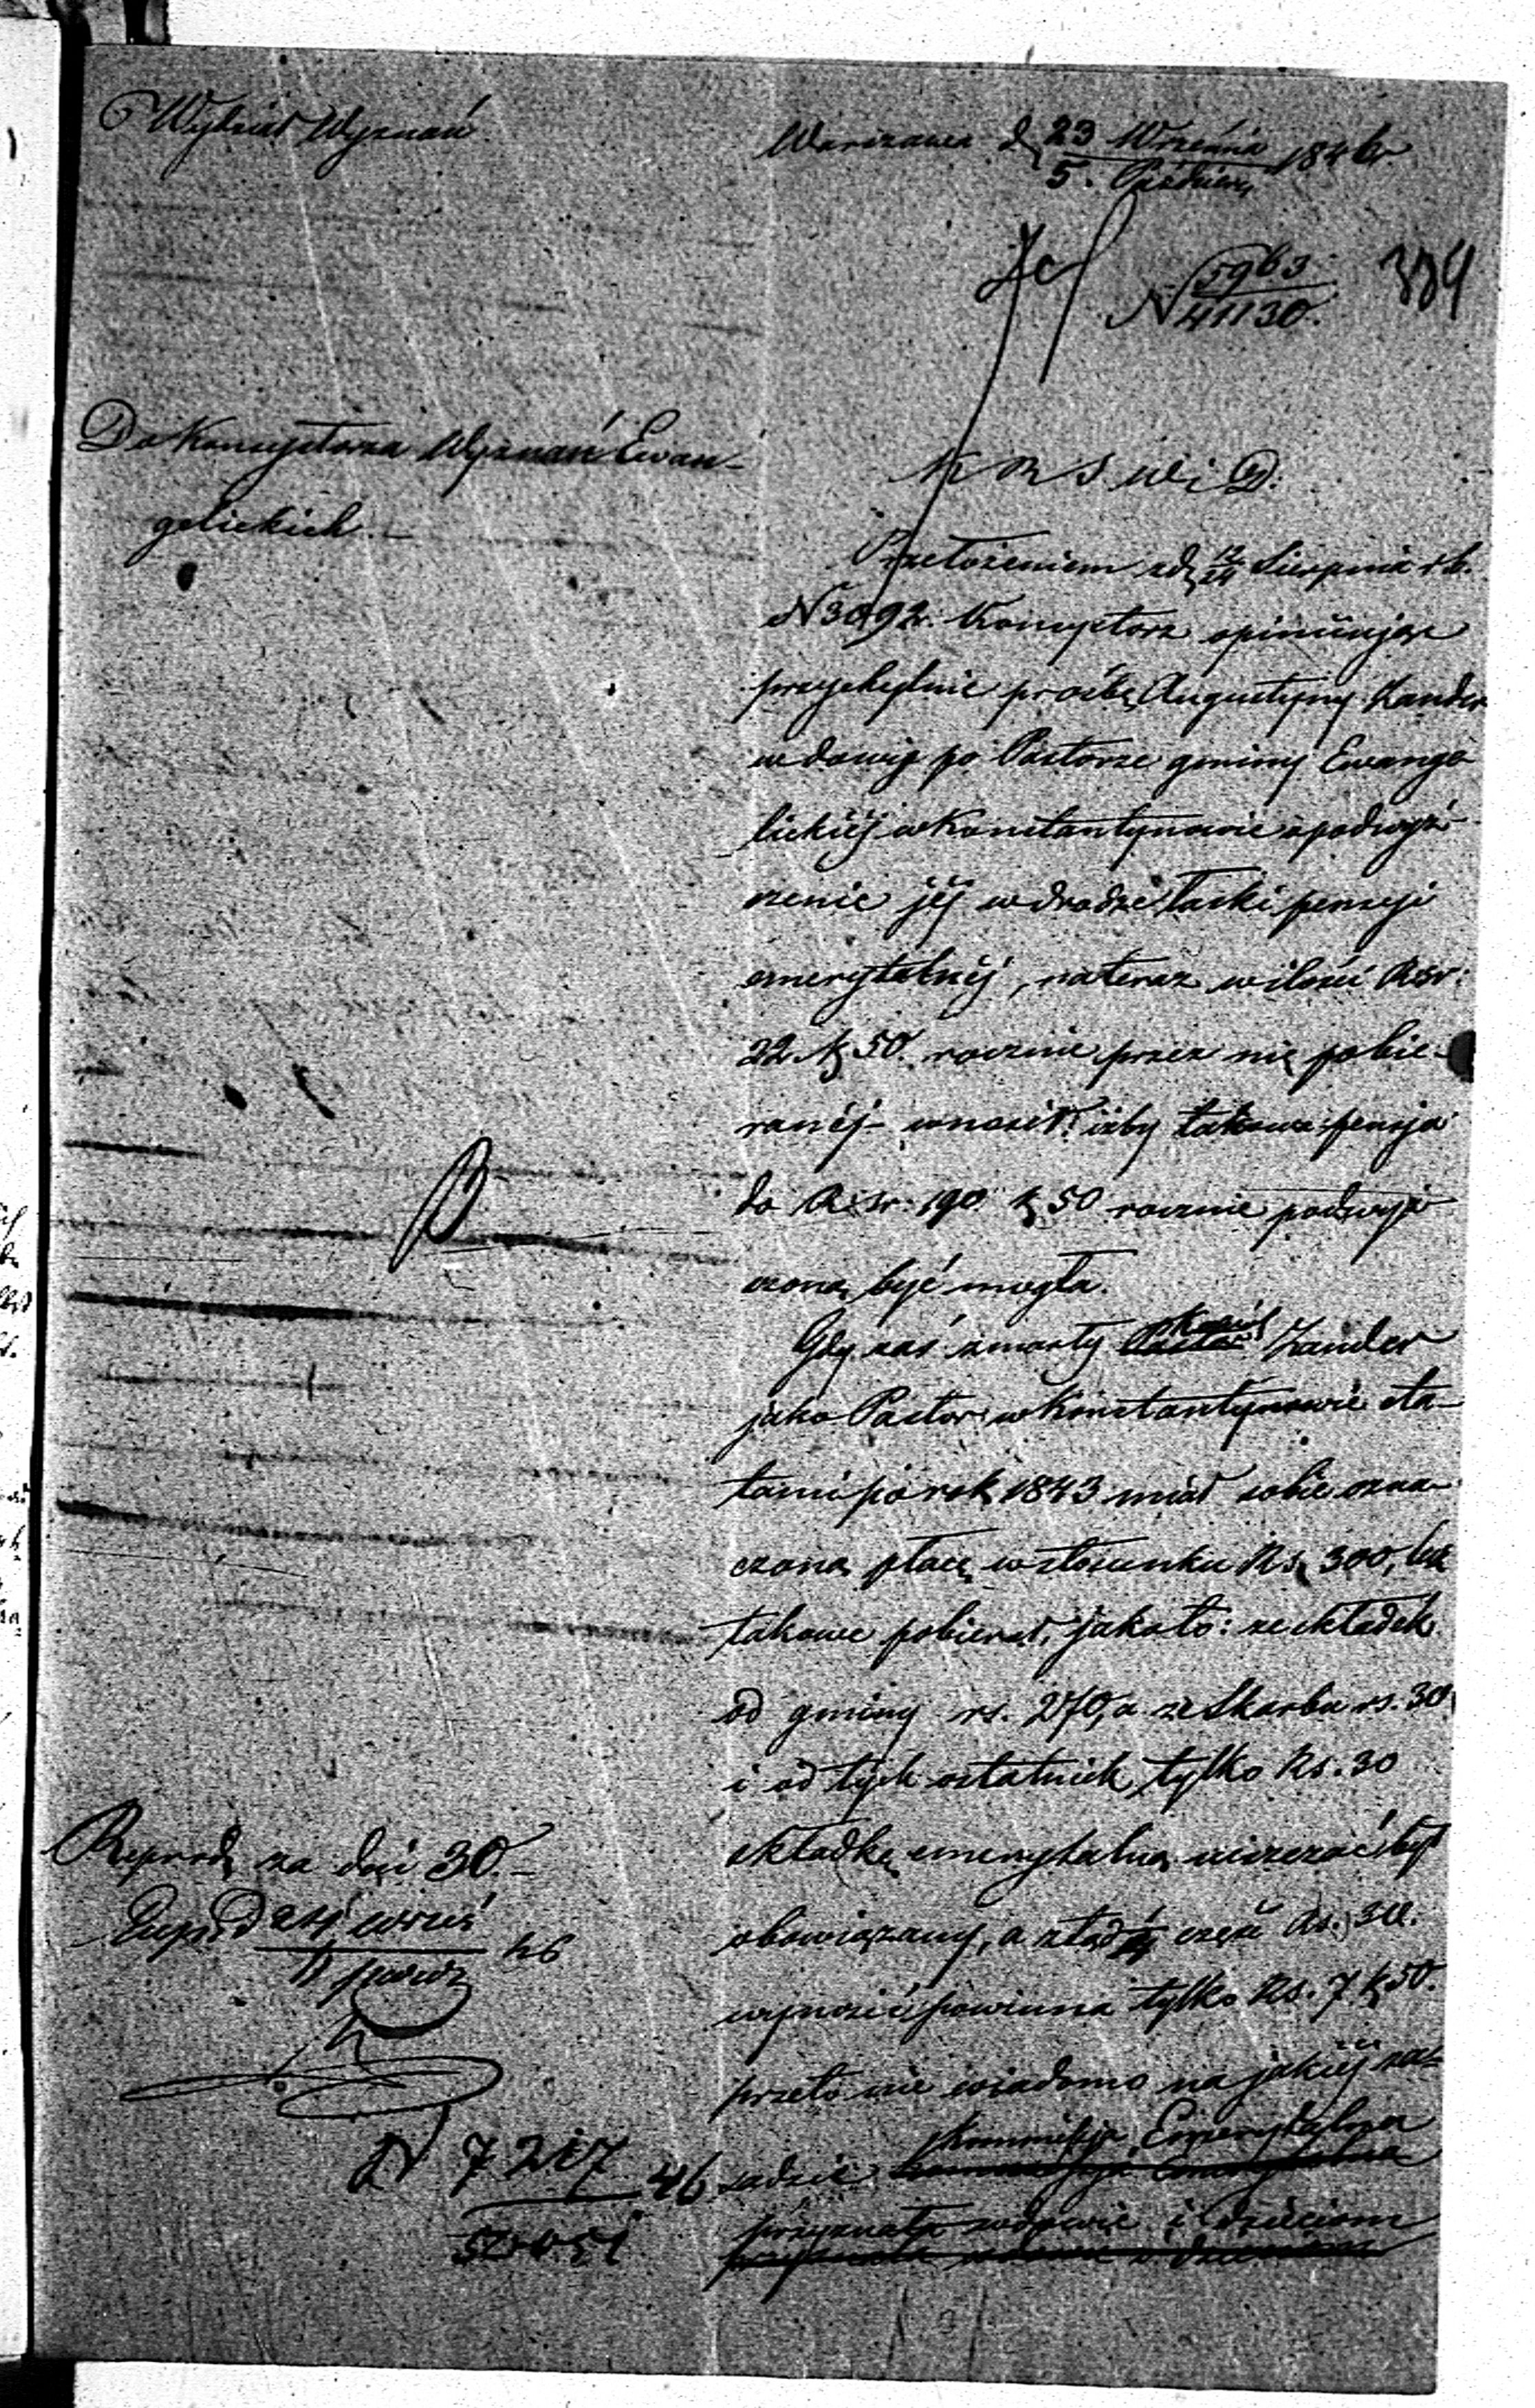 Wydział Wyznań
Warszawa d. 23 Września 1846
5. Paździer.
N 5963
41130.
334
Do Konsystorza Wyznań Ewan-
gelickich.
K R S W i D.
Przełożeniem z d. 12/24 Sierpnia r. b.
N 3092. Konsystorz opiniując
przychylnie prośbę Augustyny Zander
wdowy po Pastorze gminy Ewange-
lickiéj w Konstantynowie o podwyż-
szenie jéj w drodze łaski pensyi
emerytalnéj, na teraz w ilości Rsr.
22 k. 50. rocznie przez nię pobie-
ranéj - wnosił, iżby takowa pensja
do R. sr. 190 k 50 rocznie podwyż-
szoną być mogła.
Gdy zaś zmarły Zander
jako Pastor w Konstantynowie eta-
tami po rok 1843 miał sobie ozna-
czoną płacę w stosunku Rs. 300, lecz
takowe pobierał, jako to: ze składek
od gminy rs. 270, a ze Skarbu rs. 30
i od tych ostatnich tylko Rs. 30
składkę emerytalną uiszczać był
obowiązany, a ztąd ¼ część Rs. 30.
wynosić powinna tylko Rs. 7 k 50.
przeto nie wiadomo na jakiéj za-
sadzie Kommissja Emerytalna
przyznała wdowie i dzieciom
Reprod. za dni 30.-
Exped 24 Wrześ 46
N 7217 46